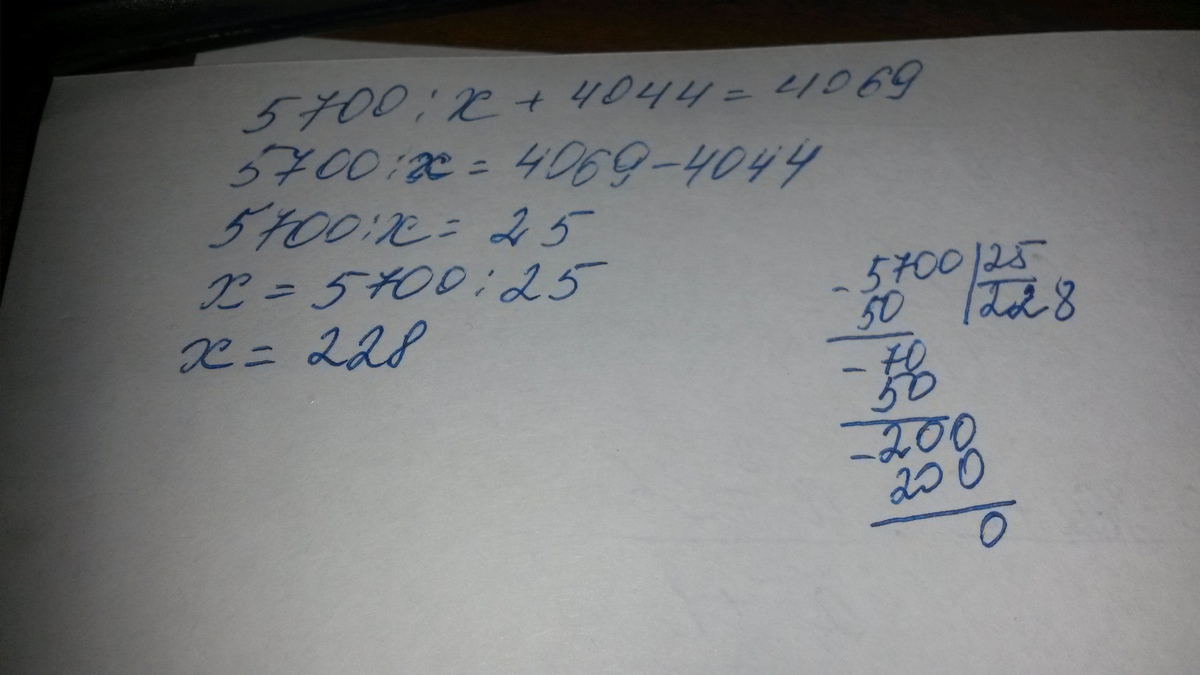 5700 : x + 4044 = 4069
5700 : x = 4069 - 4044
5700 : x = 25
x = 5700 : 25
x = 228
- 5700 | 25
50 | 228
- 70
50
- 200
200
0